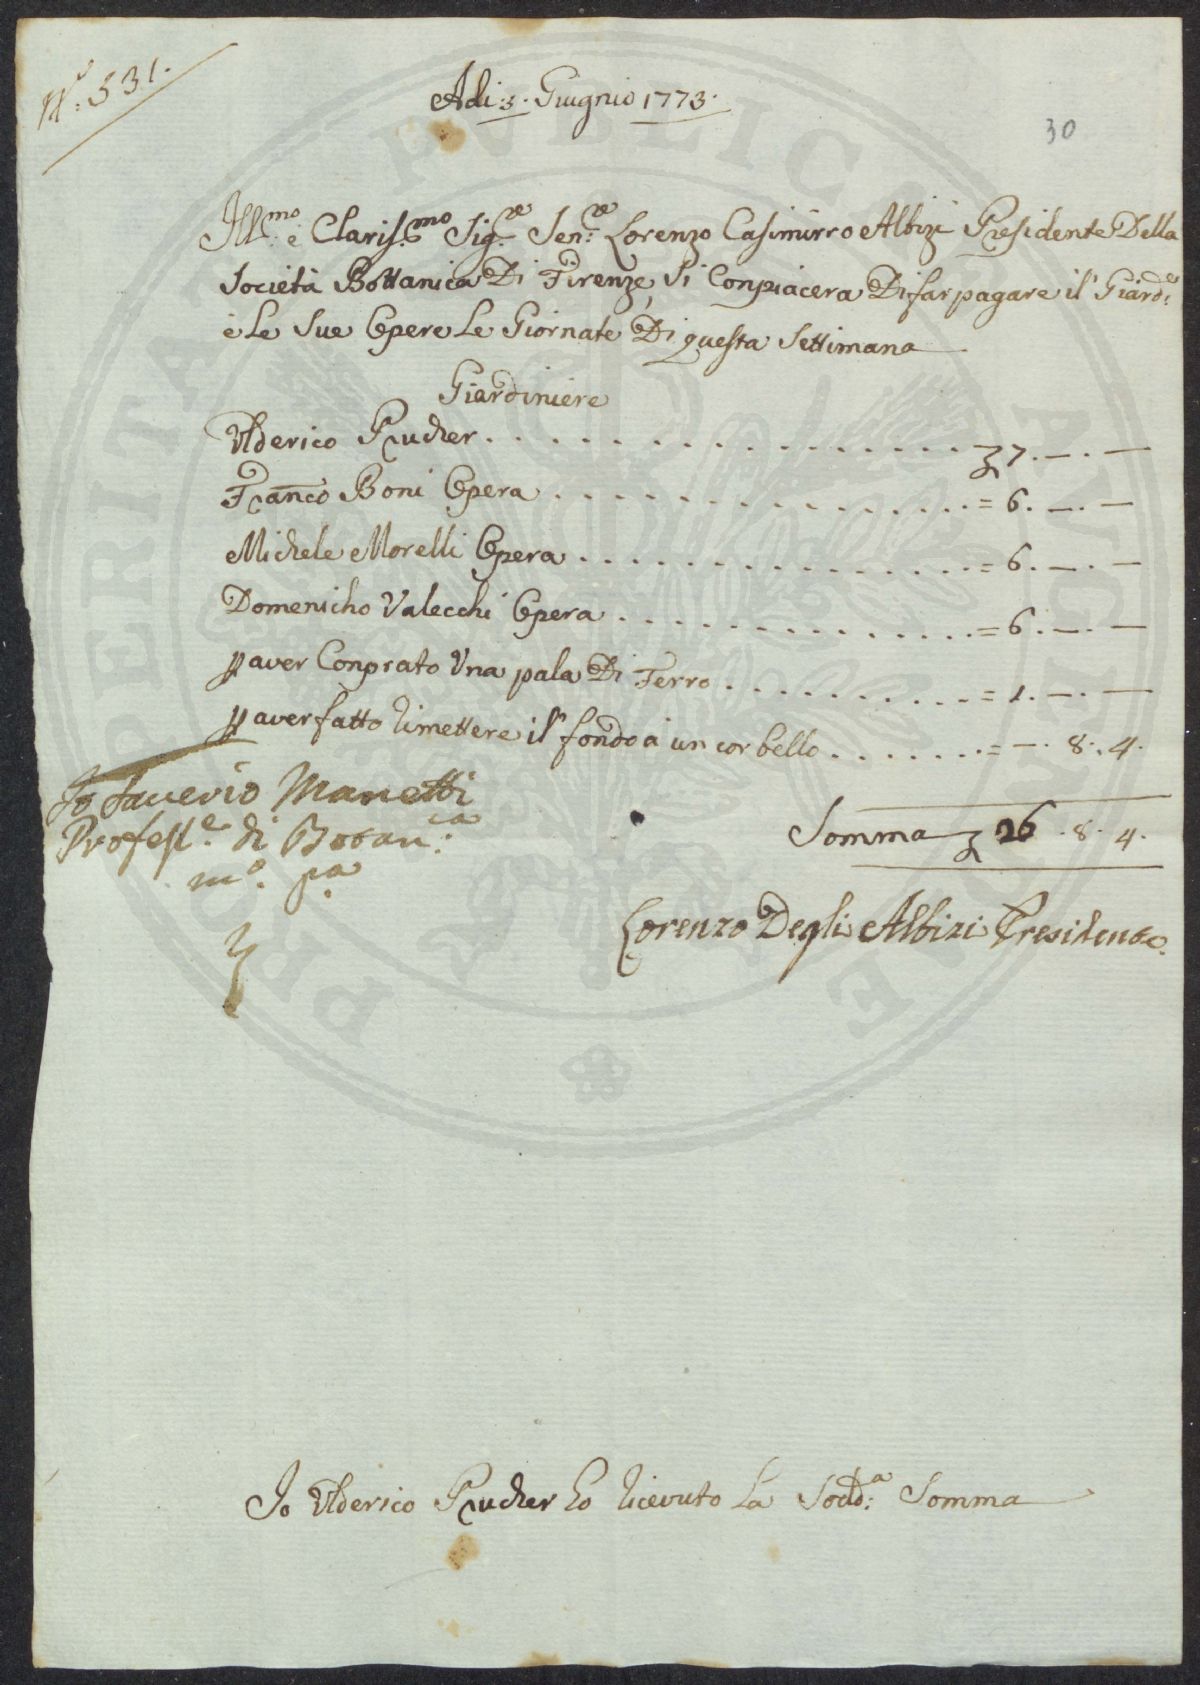 N.º 531.
Adi: 3. Giugnio 1773.
30
Ill.mo è Claris.mo Sig.re Sen.re Lorenzo Casimirro Albizi Presidente Della
Società Bottanica Di Firenze, Si Conpiacera Di far pagare il Giard.e
è Le Sue Opere Le Giornate Di questa Settimana
Giardiniere
Ulderico Prucher . . . . . . . . . . . . . . . . . . 7. —. —
Franco Boni Opera . . . . . . . . . . . . . . . = 6. —. —
Michele Morelli Opera . . . . . . . . . . . . . . = 6. —. —
Domenicho Valecchi Opera . . . . . . . . . . . . = 6. —. —
p aver Conprato Una pala Di Ferro . . . . . . . . . = 1. —. —
p aver fatto rimettere il fondo à un corbello . . . . . . = —. 8. 4.
Io Saverio Manetti
Profess.e di Botan.ca
m.º p.a
Somma 26. 8. 4.
Lorenzo Degli Albizi Presidente.
Io Ulderico Prucher ho ricevuto La Sodd.a Somma
PROSPERITATI PUBLICAE AUGENDAE